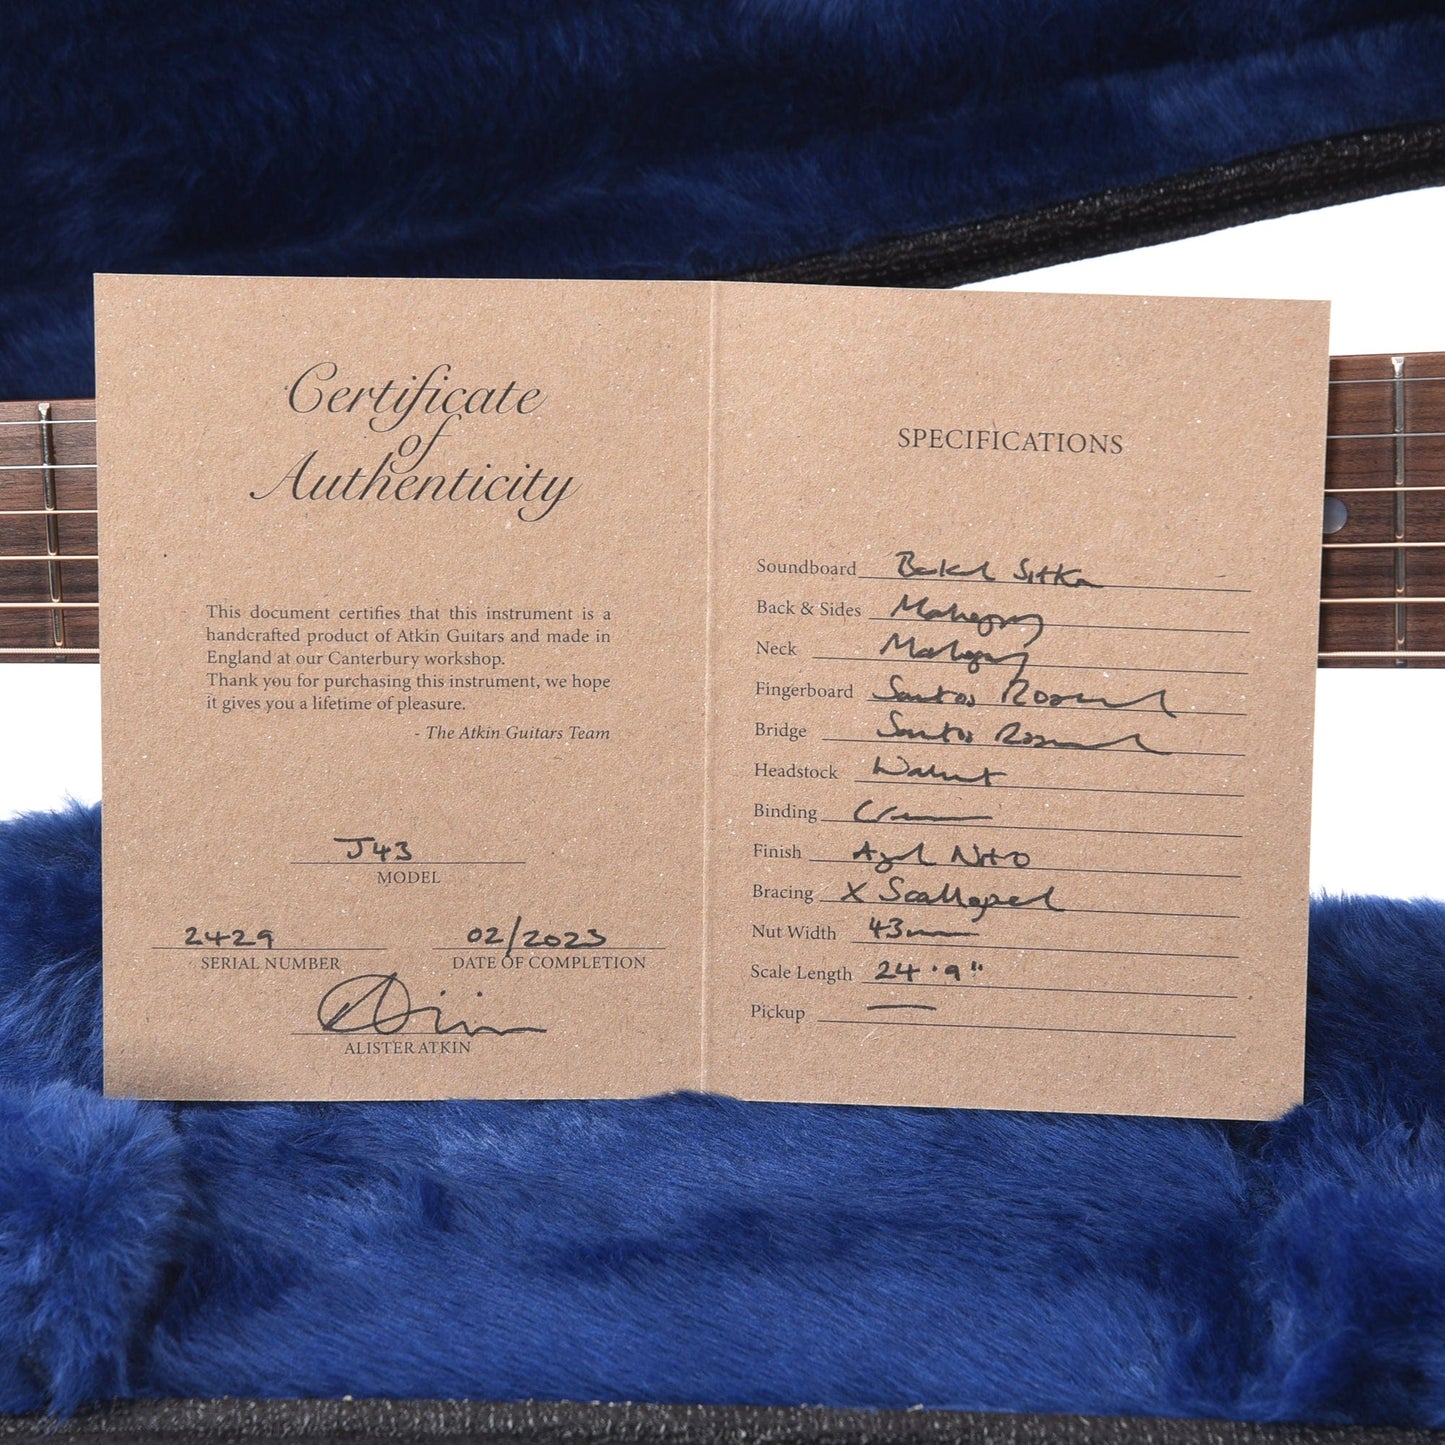 Certificate
of
Authenticity
This document certifies that this instrument is a
handcrafted product of Atkin Guitars and made in
England at our Canterbury workshop.
Thank you for purchasing this instrument, we hope
it gives you a lifetime of pleasure.
- The Atkin Guitars Team
J43
MODEL
2429
SERIAL NUMBER
02/2023
DATE OF COMPLETION
ALISTER ATKIN
SPECIFICATIONS
Soundboard Baked Sitka
Back & Sides Mahogany
Neck Mahogany
Fingerboard Santos Rosewood
Bridge Santos Rosewood
Headstock Walnut
Binding Cream
Finish Aged Nitro
Bracing X Scalloped
Nut Width 43mm
Scale Length 24.9"
Pickup —